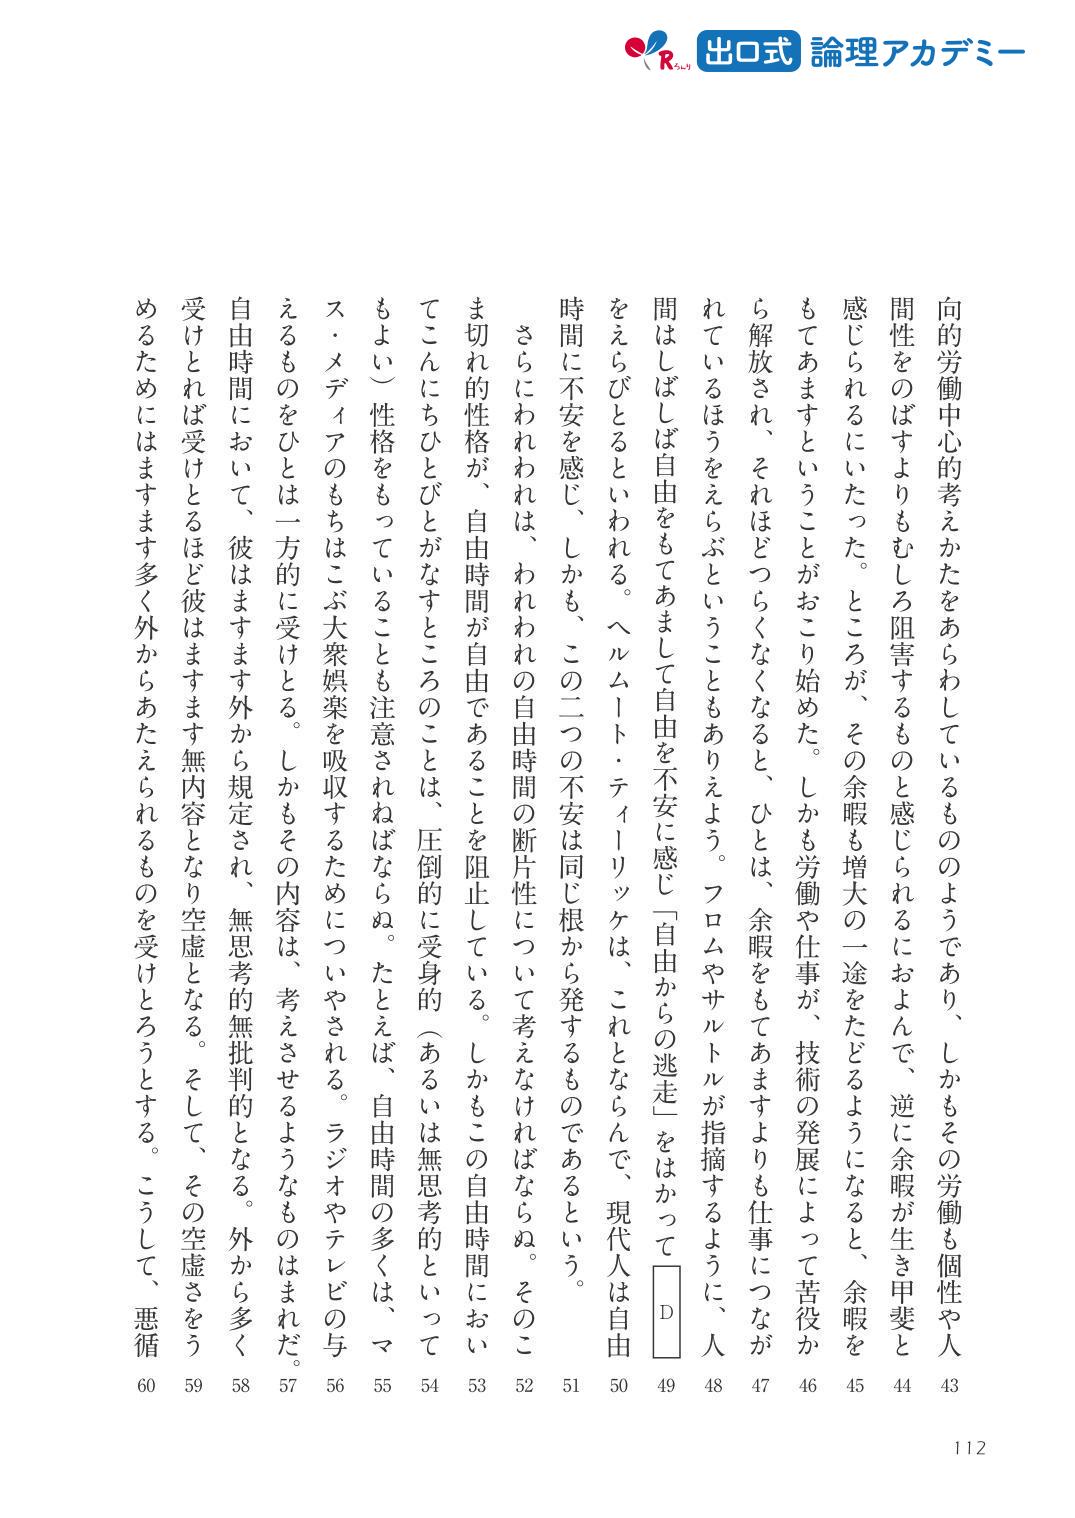 Rろんり 出口式 論理アカデミー
向的労働中心的考えかたをあらわしているもののようであり、しかもその労働も個性や人 43
間性をのばすよりもむしろ阻害するものと感じられるにおよんで、逆に余暇が生き甲斐と 44
感じられるにいたった。ところが、その余暇も増大の一途をたどるようになると、余暇を 45
もてあますということがおこり始めた。しかも労働や仕事が、技術の発展によって苦役か 46
ら解放され、それほどつらくなくなると、ひとは、余暇をもてあますよりも仕事につなが 47
れているほうをえらぶということもありえよう。フロムやサルトルが指摘するように、人 48
間はしばしば自由をもてあまして自由を不安に感じ「自由からの逃走」をはかって D 49
をえらびとるといわれる。ヘルムート・ティーリッケは、これとならんで、現代人は自由 50
時間に不安を感じ、しかも、この二つの不安は同じ根から発するものであるという。 51
さらにわれわれは、われわれの自由時間の断片性について考えなければならぬ。そのこ 52
ま切れ的性格が、自由時間が自由であることを阻止している。しかもこの自由時間におい 53
てこんにちひとびとがなすところのことは、圧倒的に受身的（あるいは無思考的といって 54
もよい）性格をもっていることも注意されねばならぬ。たとえば、自由時間の多くは、マ 55
ス・メディアのもちはこぶ大衆娯楽を吸収するためについやされる。ラジオやテレビの与 56
えるものをひとは一方的に受けとる。しかもその内容は、考えさせるようなものはまれだ。 57
自由時間において、彼はますます外から規定され、無思考的無批判的となる。外から多く 58
受けとれば受けとるほど彼はますます無内容となり空虚となる。そして、その空虚さをう 59
めるためにはますます多く外からあたえられるものを受けとろうとする。こうして、悪循 60
112